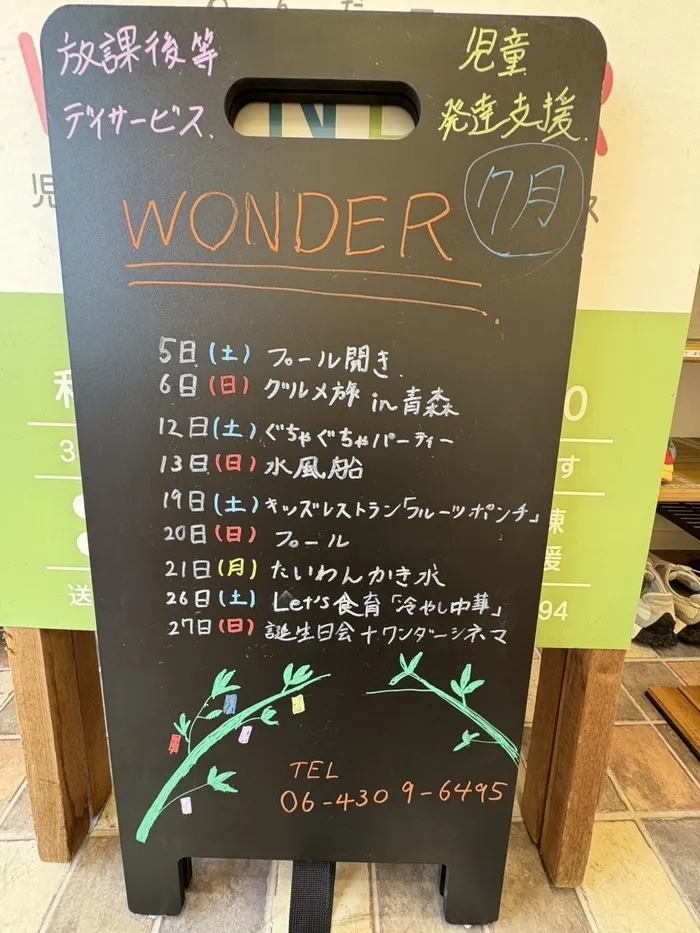 放課後等
デイサービス.
児童
発達支援.
WONDER
7月
5日(土) プール開き.
6日(日) グルメ旅 in青森
12日(土) ぐちゃぐちゃパーティー
13日(日) 水風船
19日(土) キッズレストラン「フルーツポンチ」
20日(日) プール
21日(月) たいわんかき氷
26日(土) Let's食育「冷やし中華」
27日(日) 誕生日会+ワンダーシネマ
TEL
06-4309-6495
児
利
3
送
0
す
援
94